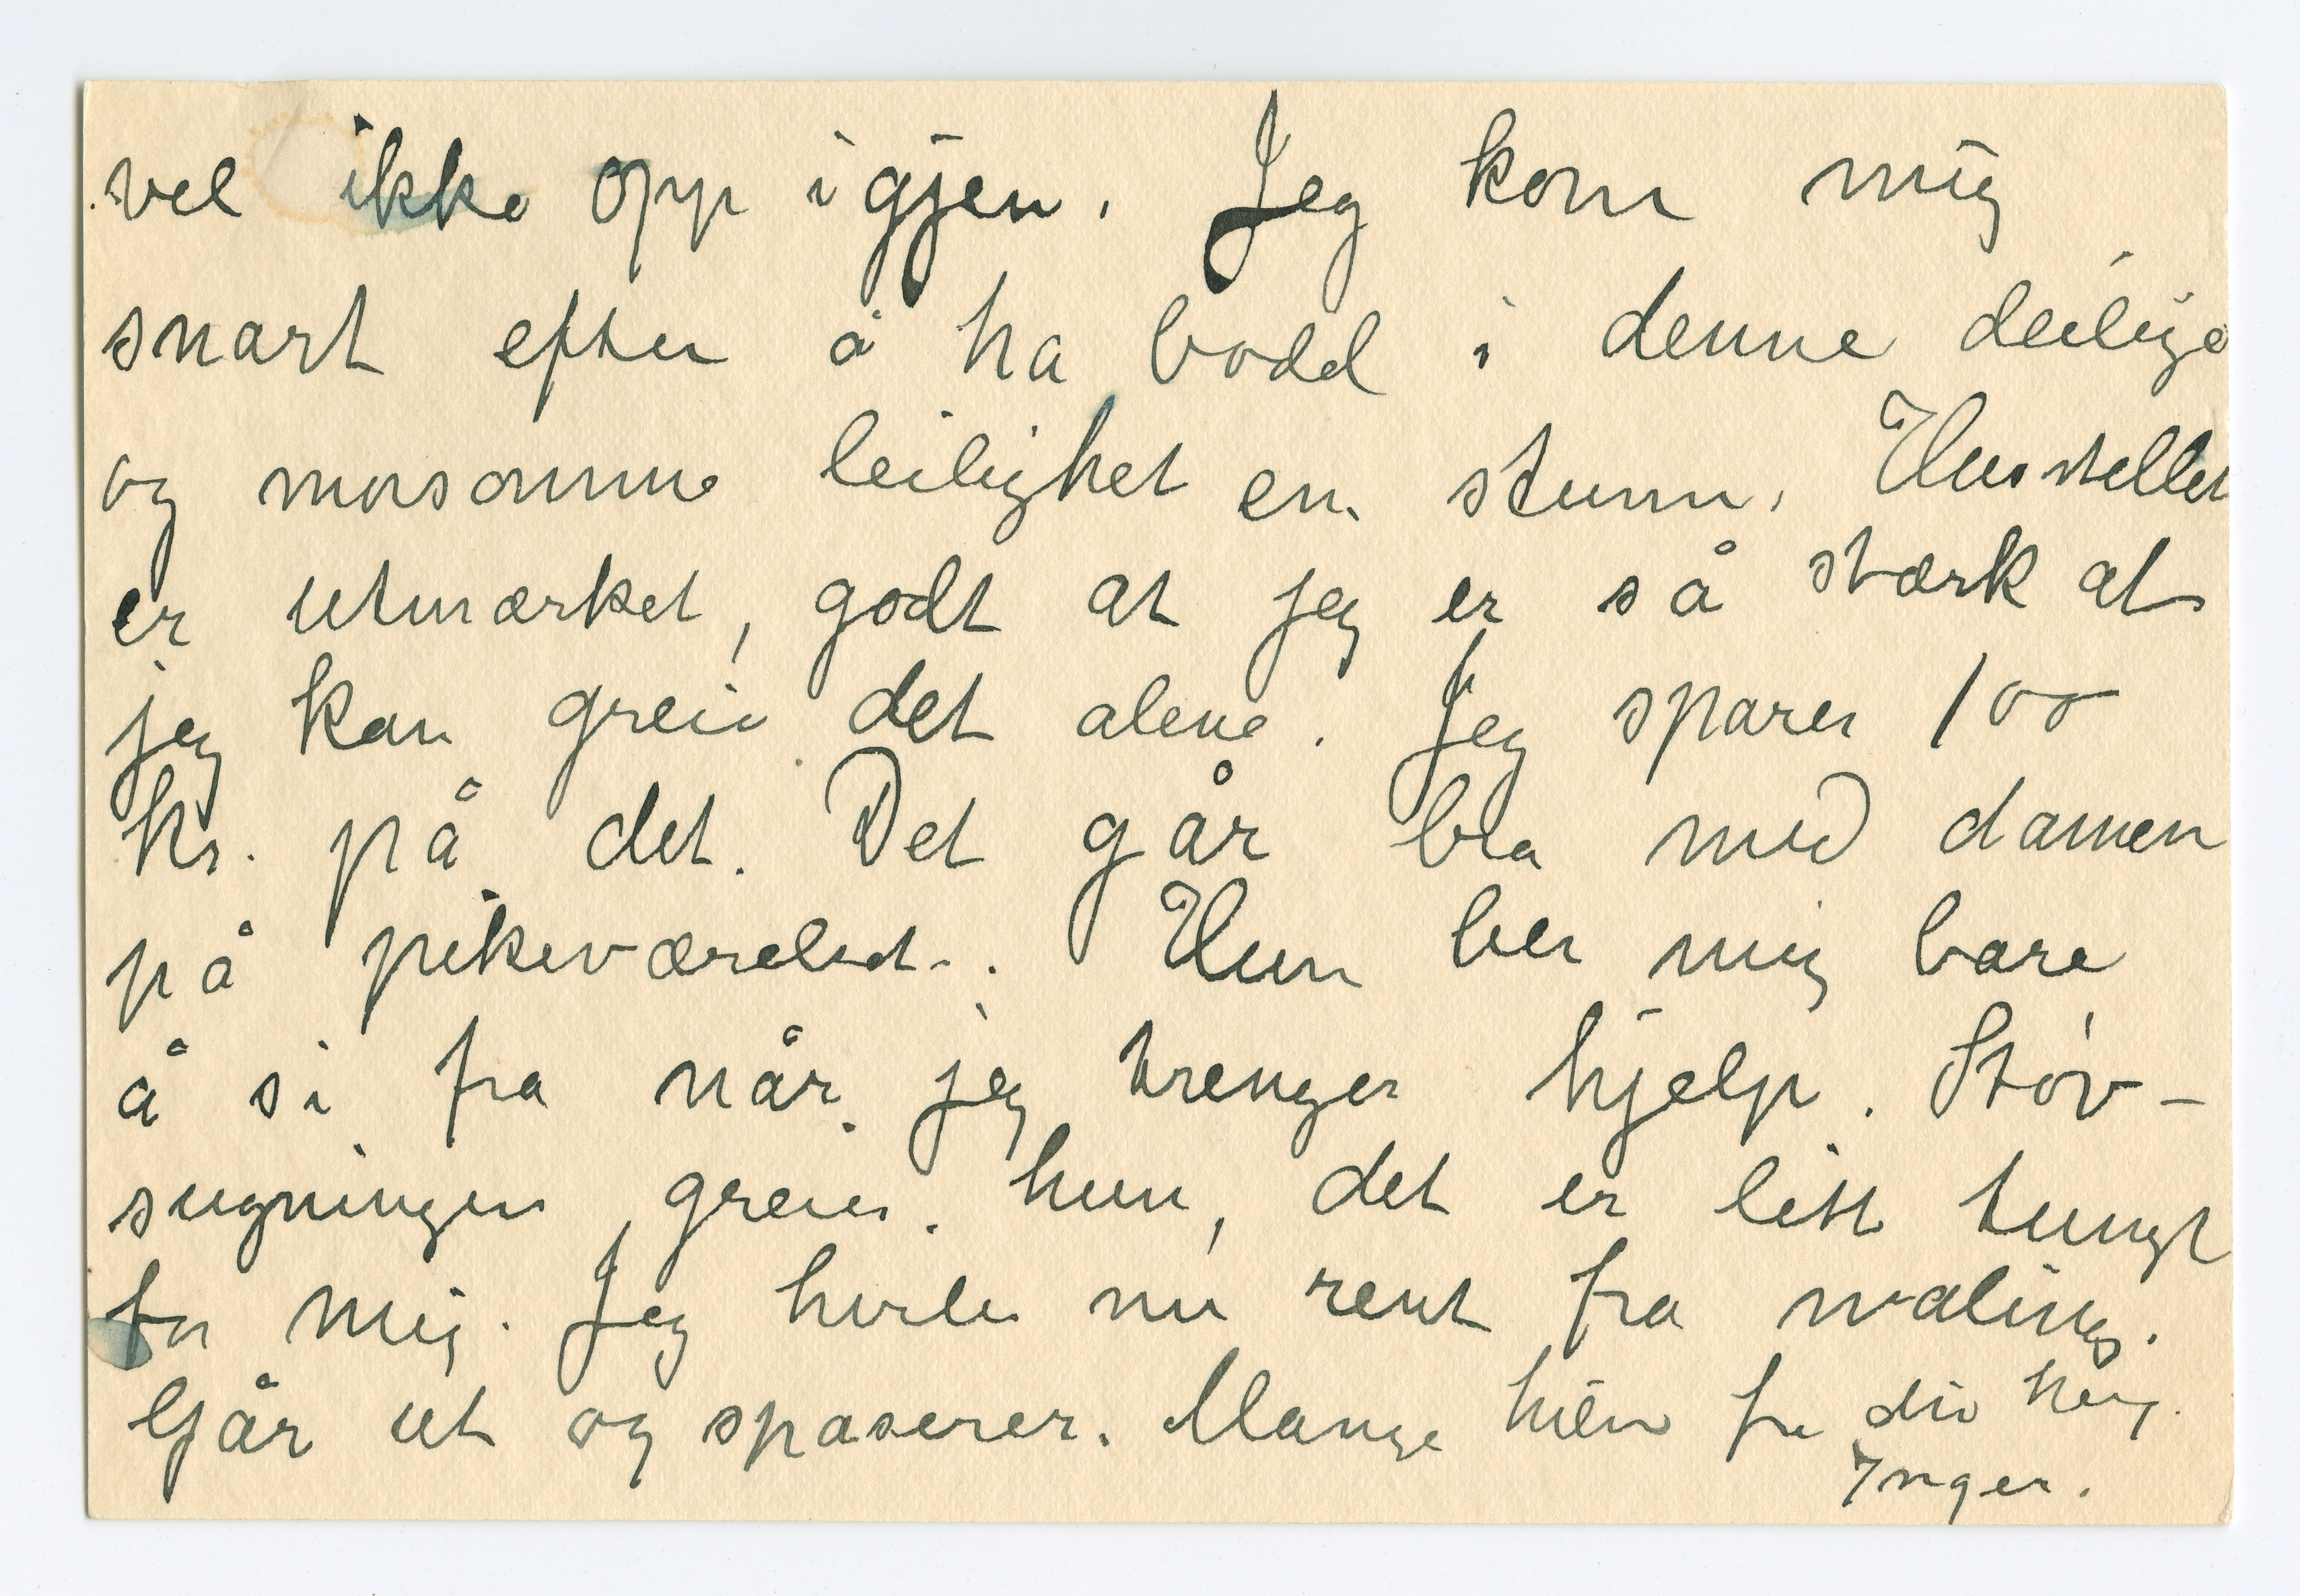 vel ikke opp igjen. Jeg kom mig
snart efter å ha bodd i denne deilige
og morsomme leilighet en stunn. Husstellet
er utmærket, godt at jeg er så stærk at
jeg kan greie det alene. Jeg sparer 100
kr. på det. Det går bra med damen
på pikeværelset. Hun ber mig bare
å si fra når jeg trenger hjelp. Støv-
sugningen greier hun, det er litt tungt
for mig. Jeg hviler nu rent fra maling.
Går ut og spaserer. Mange hilsn fra din heng.
Inger.